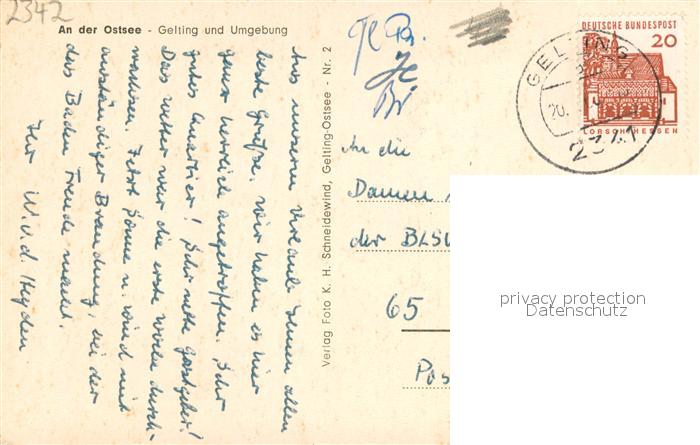 2342
An der Ostsee - Gelting und Umgebung
Aus unserem Urlaub Ihnen allen
beste Grüße. Wir haben es hier
ganz herrlich angetroffen. Sehr
gutes Quartier! Sehr nette Gastgeber!
Das Wetter war die erste Woche durch-
wachsen. Jetzt Sonne u. Wind mit
anständiger Brandung, bei der
das Baden Freude macht.
Ihr W. v. d. Heyden.
Verlag Foto K. H. Schneidewind, Gelting-Ostsee - Nr. 2
An die
Damen
der BLSV
65
Pos
DEUTSCHE BUNDESPOST
20
LORSCH/HESSEN
GELTING
20.
2341
privacy protection
Datenschutz